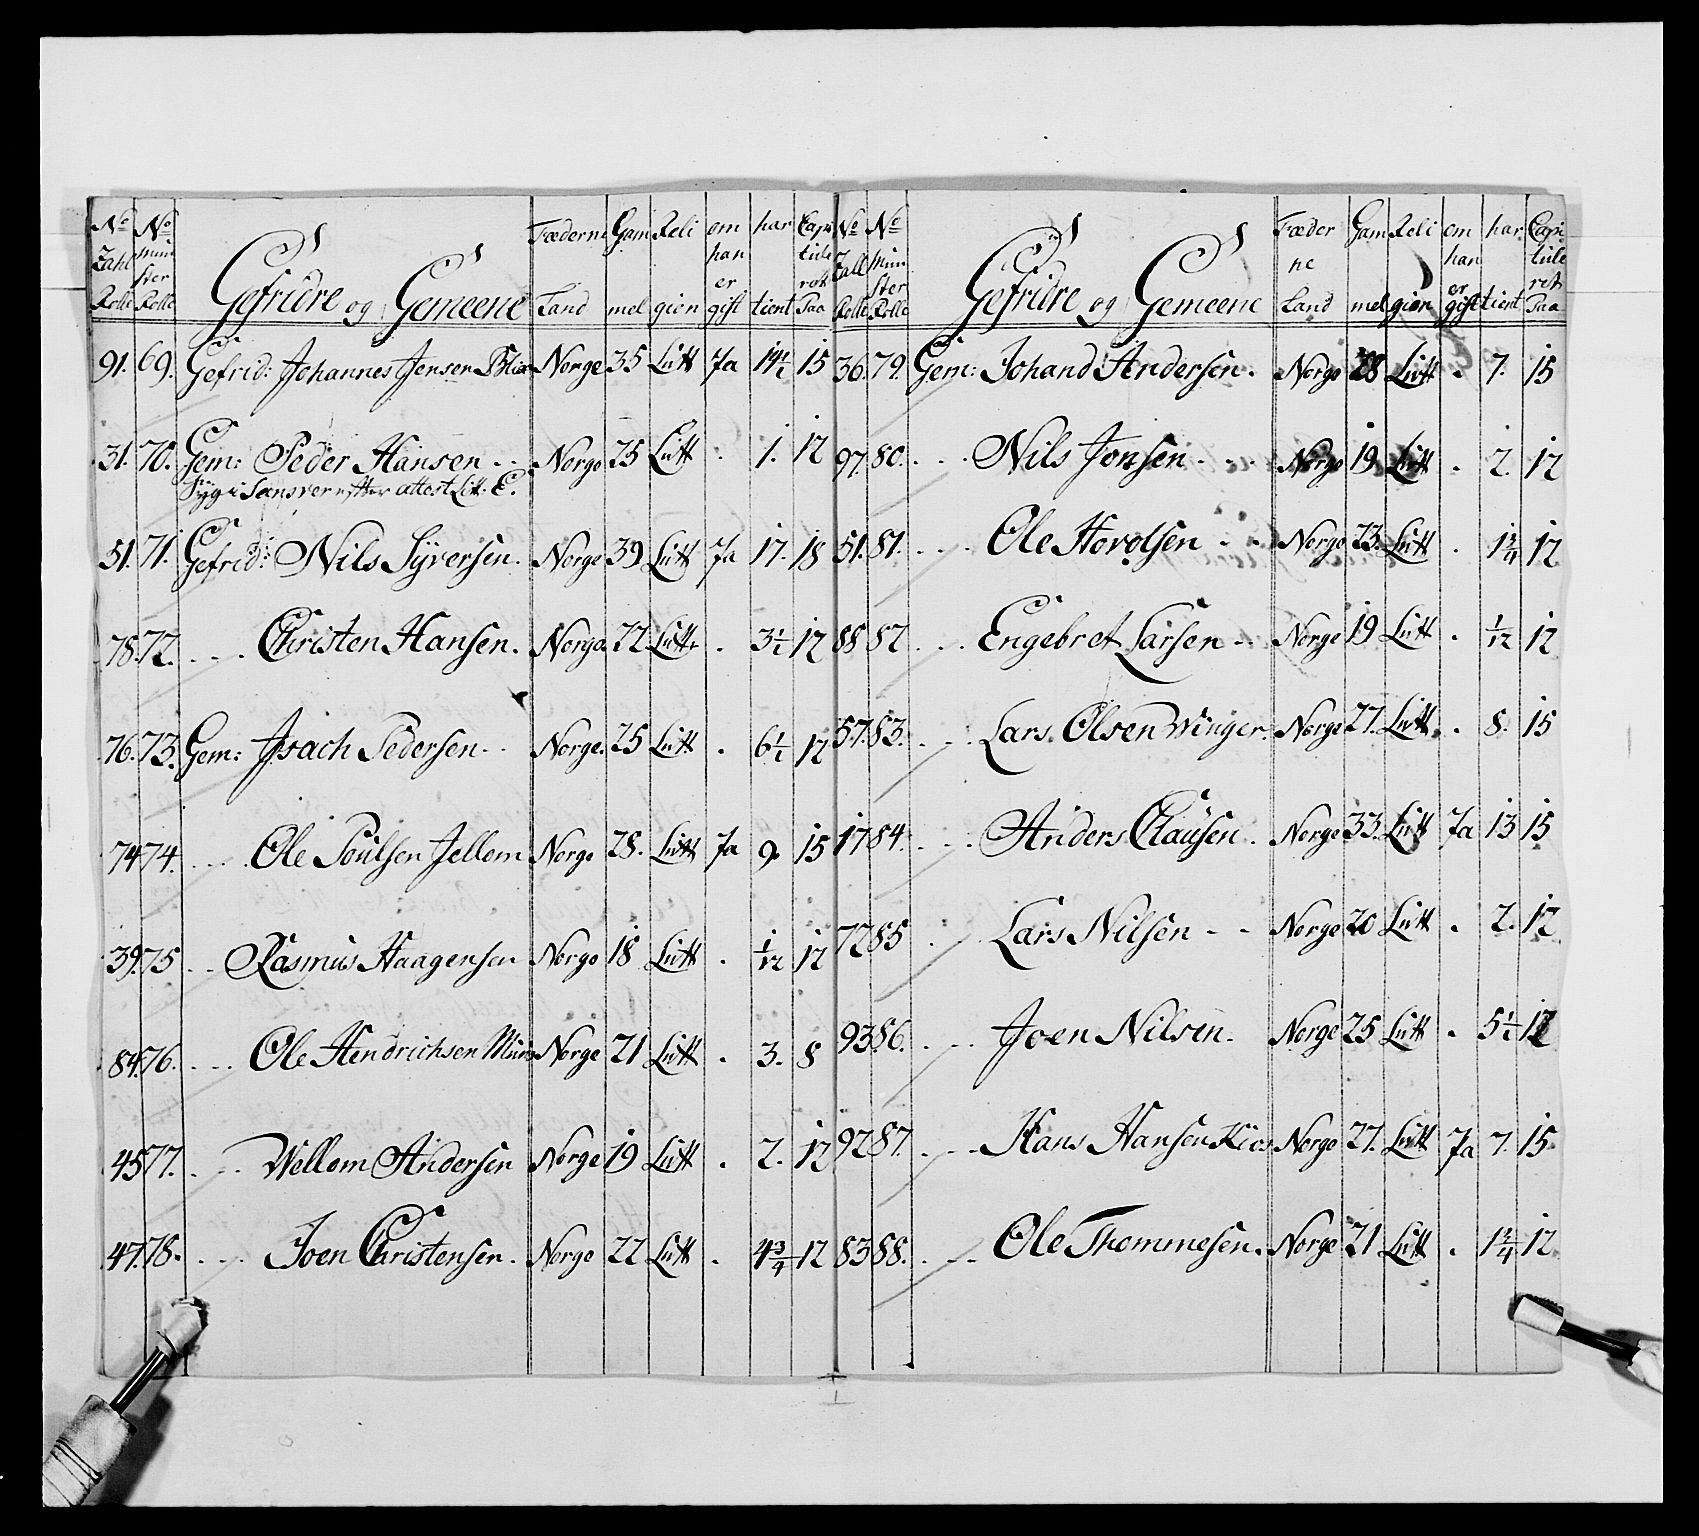 No Zahl Rolle | No Mün ster Rolle | Gefridre og Gemeene | Fæderne Land | Gam mel | Reli gion | om han er gift | har tient | Capi tule ret Paa
91. 69. Gefrid: Johannes Jensen Blix Norge 35 Lutt Ja 14½ 15
31. 70. Gem: Peder Hansen . . Norge 25 Lutt . 1. 12
Syg i Sensver efter attest Litt. E.
51. 71. Gefrid: Nils Syversen. Norge 39 Lutt Ja 17. 18
78. 72. . . . Christen Hansen. Norge 22 Lutt. . 3½ 12
76. 73. Gem: Isach Pedersen . . Norge. 25 Lutt . 6½ 12
74 74. . . . Ole Poulsen Jellom Norge 28. Lutt Ja 9. 15
39. 75 . . Rasmus Haagensen Norge 18 Lutt . 1/12 12
84. 76. . . . Ole Hendrichsen Norge 21 Lutt . 3. 8
45 77. . . . Wellom Andersen Norge 19 Lutt . 2. 12
47. 78. . . . Joen Christensen. Norge 22 Lutt . 4¾ 12
No Zall Rolle | No Mün ster Rolle | Gefridre og Gemeene | Fæder ne Land | Gam mel | Reli gion | om han er gift | har tient | Capi tule ret Paa
36. 79. Gem: Johand Andersen. Norge 28 Lutt . 7. 15
97. 80. . . . Nils Jonsen . . . Norge 19 Lutt . 2. 12
51. 81. . . . Ole Horolsen . . Norge 23. Lutt . 1¾ 12
88 82 . . . Engebret Larsen . . Norge 19 Lutt . 1/12 12
57. 83. . . . Lars Olsen Winger. Norge 27. Lutt. . 8. 15
17 84. . . . Anders Clausen. . Norge 33. Lutt Ja 13 15
72 85 . . Lars Nilsen . . Norge 20 Lutt . 2. 12
93 86. . . . Joen Nilsen. Norge 25 Lutt . 5½ 12
92 87. . . . Hans Hansen Kios Norge 27. Lutt Ja 7. 15
83 88. . . . Ole Thommesen. Norge 21 Lutt . 1¾ 12